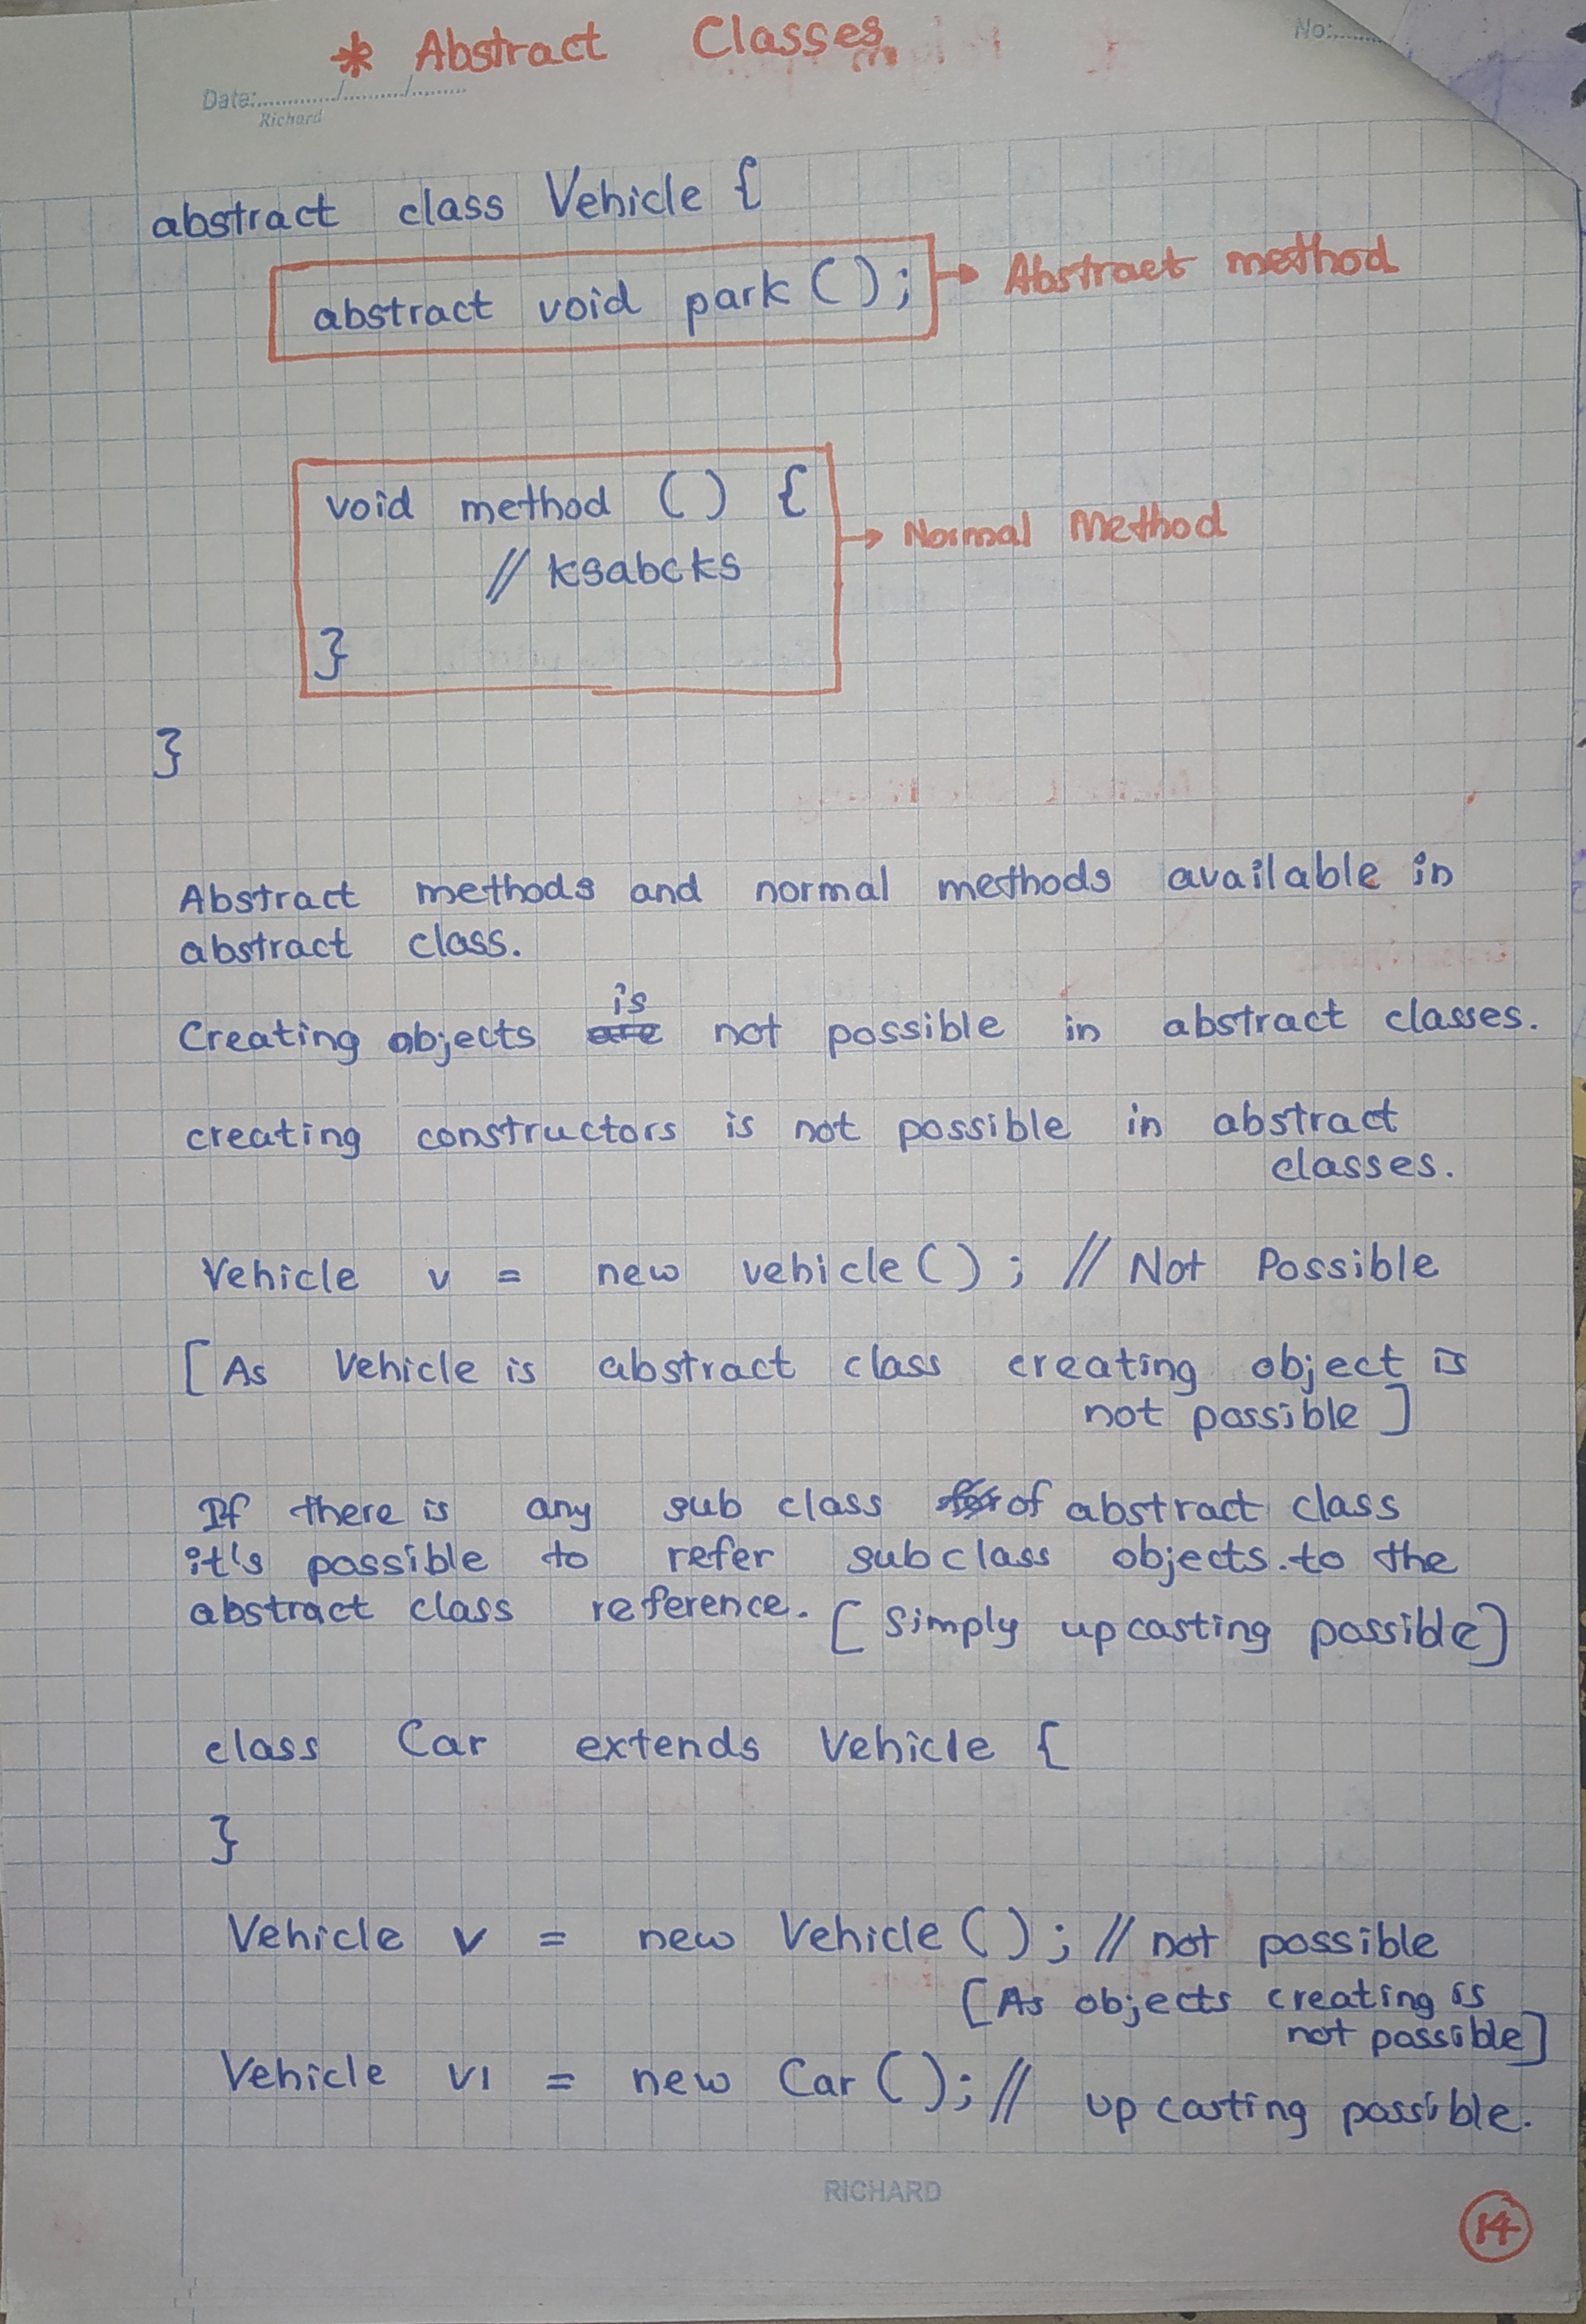 * Abstract Classes
No:........
Date:............/........../.........
Richard
abstract class Vehicle {
abstract void park ( ) ; → Abstract method
void method ( ) {
// ksabcks
→ Normal Method
}
}
Abstract methods and normal methods available in
abstract class.
is
Creating objects are not possible in abstract classes.
creating constructors is not possible in abstract
classes.
Vehicle v = new vehicle ( ) ; // Not Possible
[ As Vehicle is abstract class creating object is
not possible ]
If there is any sub class for of abstract class
it's possible to refer subclass objects. to the
abstract class reference. [ Simply up casting possible]
class Car extends Vehicle {
}
Vehicle v = new Vehicle ( ) ; // not possible
[As objects creating is
not possible]
Vehicle v1 = new Car ( ) ; // up casting possible.
RICHARD
14